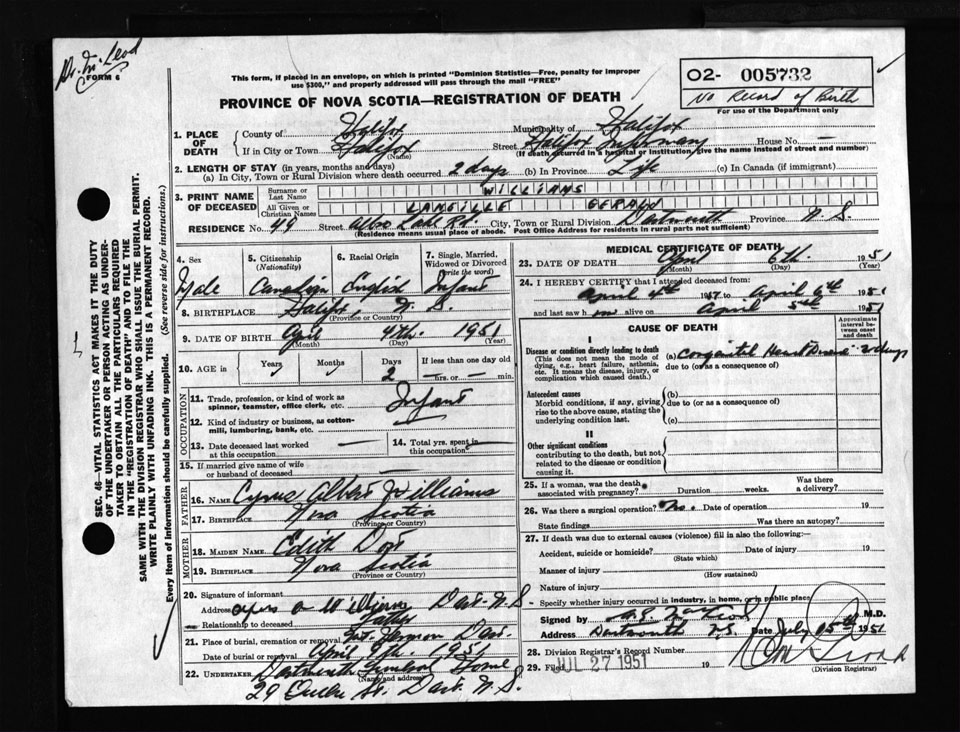 Dr. M. Leod
FORM 6
This form, if placed in an envelope, on which is printed "Dominion Statistics—Free, penalty for improper
use $300," and properly addressed will pass through the mail "FREE"
O2- 005732
No Record of Birth
For use of the Department only
PROVINCE OF NOVA SCOTIA—REGISTRATION OF DEATH
1. PLACE OF DEATH
County of Halifax Municipality of Halifax
If in City or Town Halifax (Name) Street Halifax Infirmary House No. —
(If death occurred in a hospital or institution, give the name instead of street and number)
2. LENGTH OF STAY (in years, months and days)
(a) In City, Town or Rural Division where death occurred 2 days (b) In Province Life (c) In Canada (if immigrant)
3. PRINT NAME OF DECEASED
Surname or Last Name WILLIAMS
All Given or Christian Names GERALD
RESIDENCE No. 49 Street Albro Lake Rd. City, Town or Rural Division Dartmouth Province N. S.
(Residence means usual place of abode. Post Office Address for residents in rural parts not sufficient)
4. Sex Male
5. Citizenship (Nationality) Canadian
6. Racial Origin English
7. Single, Married, Widowed or Divorced (write the word) Infant
8. BIRTHPLACE Halifax, N. S.
(Province or Country)
9. DATE OF BIRTH April 4th. 1951
(Month) (Day) (Year)
10. AGE in Years Months Days 2 If less than one day old — hrs. or — min.
OCCUPATION
11. Trade, profession, or kind of work as spinner, teamster, office clerk, etc. Infant
12. Kind of industry or business, as cotton-mill, lumbering, bank, etc.
13. Date deceased last worked at this occupation —
14. Total yrs. spent in this occupation —
15. If married give name of wife or husband of deceased —
FATHER
16. NAME Cyrus Albert Williams
17. BIRTHPLACE Nova Scotia
(Province or Country)
MOTHER
18. MAIDEN NAME Edith
19. BIRTHPLACE Nova Scotia
(Province or Country)
20. Signature of informant
Address Williams Dart. N. S.
Relationship to deceased Father
21. Place of burial, cremation or removal Mt. Hermon Dart.
Date of burial or removal April 9th. 1951
22. UNDERTAKER Dartmouth Funeral Home
(Name and address)
29 Queen St. Dart. N. S.
MEDICAL CERTIFICATE OF DEATH
23. DATE OF DEATH April 6th. 1951
(Month) (Day) (Year)
24. I HEREBY CERTIFY that I attended deceased from
April 4th 1951 to April 6th 1951
and last saw him alive on April 5th 1951
CAUSE OF DEATH
Approximate interval between onset and death
I
Disease or condition directly leading to death
(This does not mean the mode of dying, e.g., heart failure, asthenia, etc. It means the disease, injury, or complication which caused death.)
(a) Congenital Heart Disease 2 days
due to (or as a consequence of)
Antecedent causes
Morbid conditions, if any, giving rise to the above cause, stating the underlying condition last.
(b)
due to (or as a consequence of)
(c)
II
Other significant conditions
contributing to the death, but not related to the disease or condition causing it.
25. If a woman, was the death associated with pregnancy? Duration weeks. Was there a delivery?
26. Was there a surgical operation? No. Date of operation 19
State findings Was there an autopsy?
27. If death was due to external causes (violence) fill in also the following:—
Accident, suicide or homicide? Date of injury 19
(State which)
Manner of injury
(How sustained)
Nature of injury
Specify whether injury occurred in industry, in home, or in public place
Signed by M.D.
Address Dartmouth N.S. Date July 25th 1951
28. Division Registrar's Record Number
29. Filed JUL 27 1951 19
(Division Registrar)
SEC. 46—VITAL STATISTICS ACT MAKES IT THE DUTY
OF THE UNDERTAKER OR PERSON ACTING AS UNDER-
TAKER TO OBTAIN ALL THE PARTICULARS REQUIRED
IN THE "REGISTRATION OF DEATH" AND TO FILE THE
SAME WITH THE DIVISION REGISTRAR WHO SHALL ISSUE THE BURIAL PERMIT.
WRITE PLAINLY WITH UNFADING INK. THIS IS A PERMANENT RECORD.
Every item of Information should be carefully supplied. (See reverse side for instructions.)